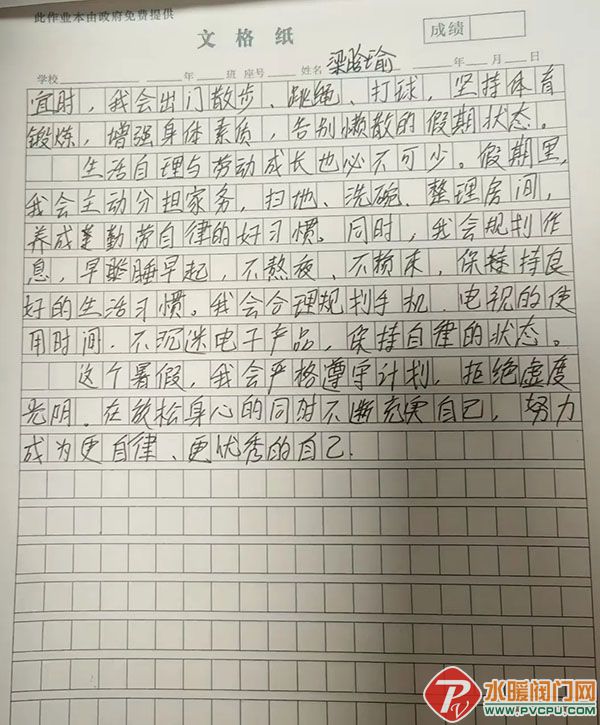 此作业本由政府免费提供
文格纸
成绩
学校 年 班 座号 姓名 梁晗瑜 年 月 日
宜时，我会出门散步、跳绳、打球，坚持体育
锻炼，增强身体素质，告别懒散的假期状态。
生活自理与劳动成长也必不可少。假期里，
我会主动分担家务，扫地、洗碗、整理房间，
养成勤劳自律的好习惯。同时，我会规划作
息，早睡早起，不熬夜、不赖床，保持良
好的生活习惯。我会合理规划手机、电视的使
用时间，不沉迷电子产品，保持自律的状态。
这个暑假，我会严格遵守计划，拒绝虚度
光阴，在放松身心的同时不断充实自己，努力
成为更自律、更优秀的自己.
水暖阀门网
WWW.PVCPU.COM